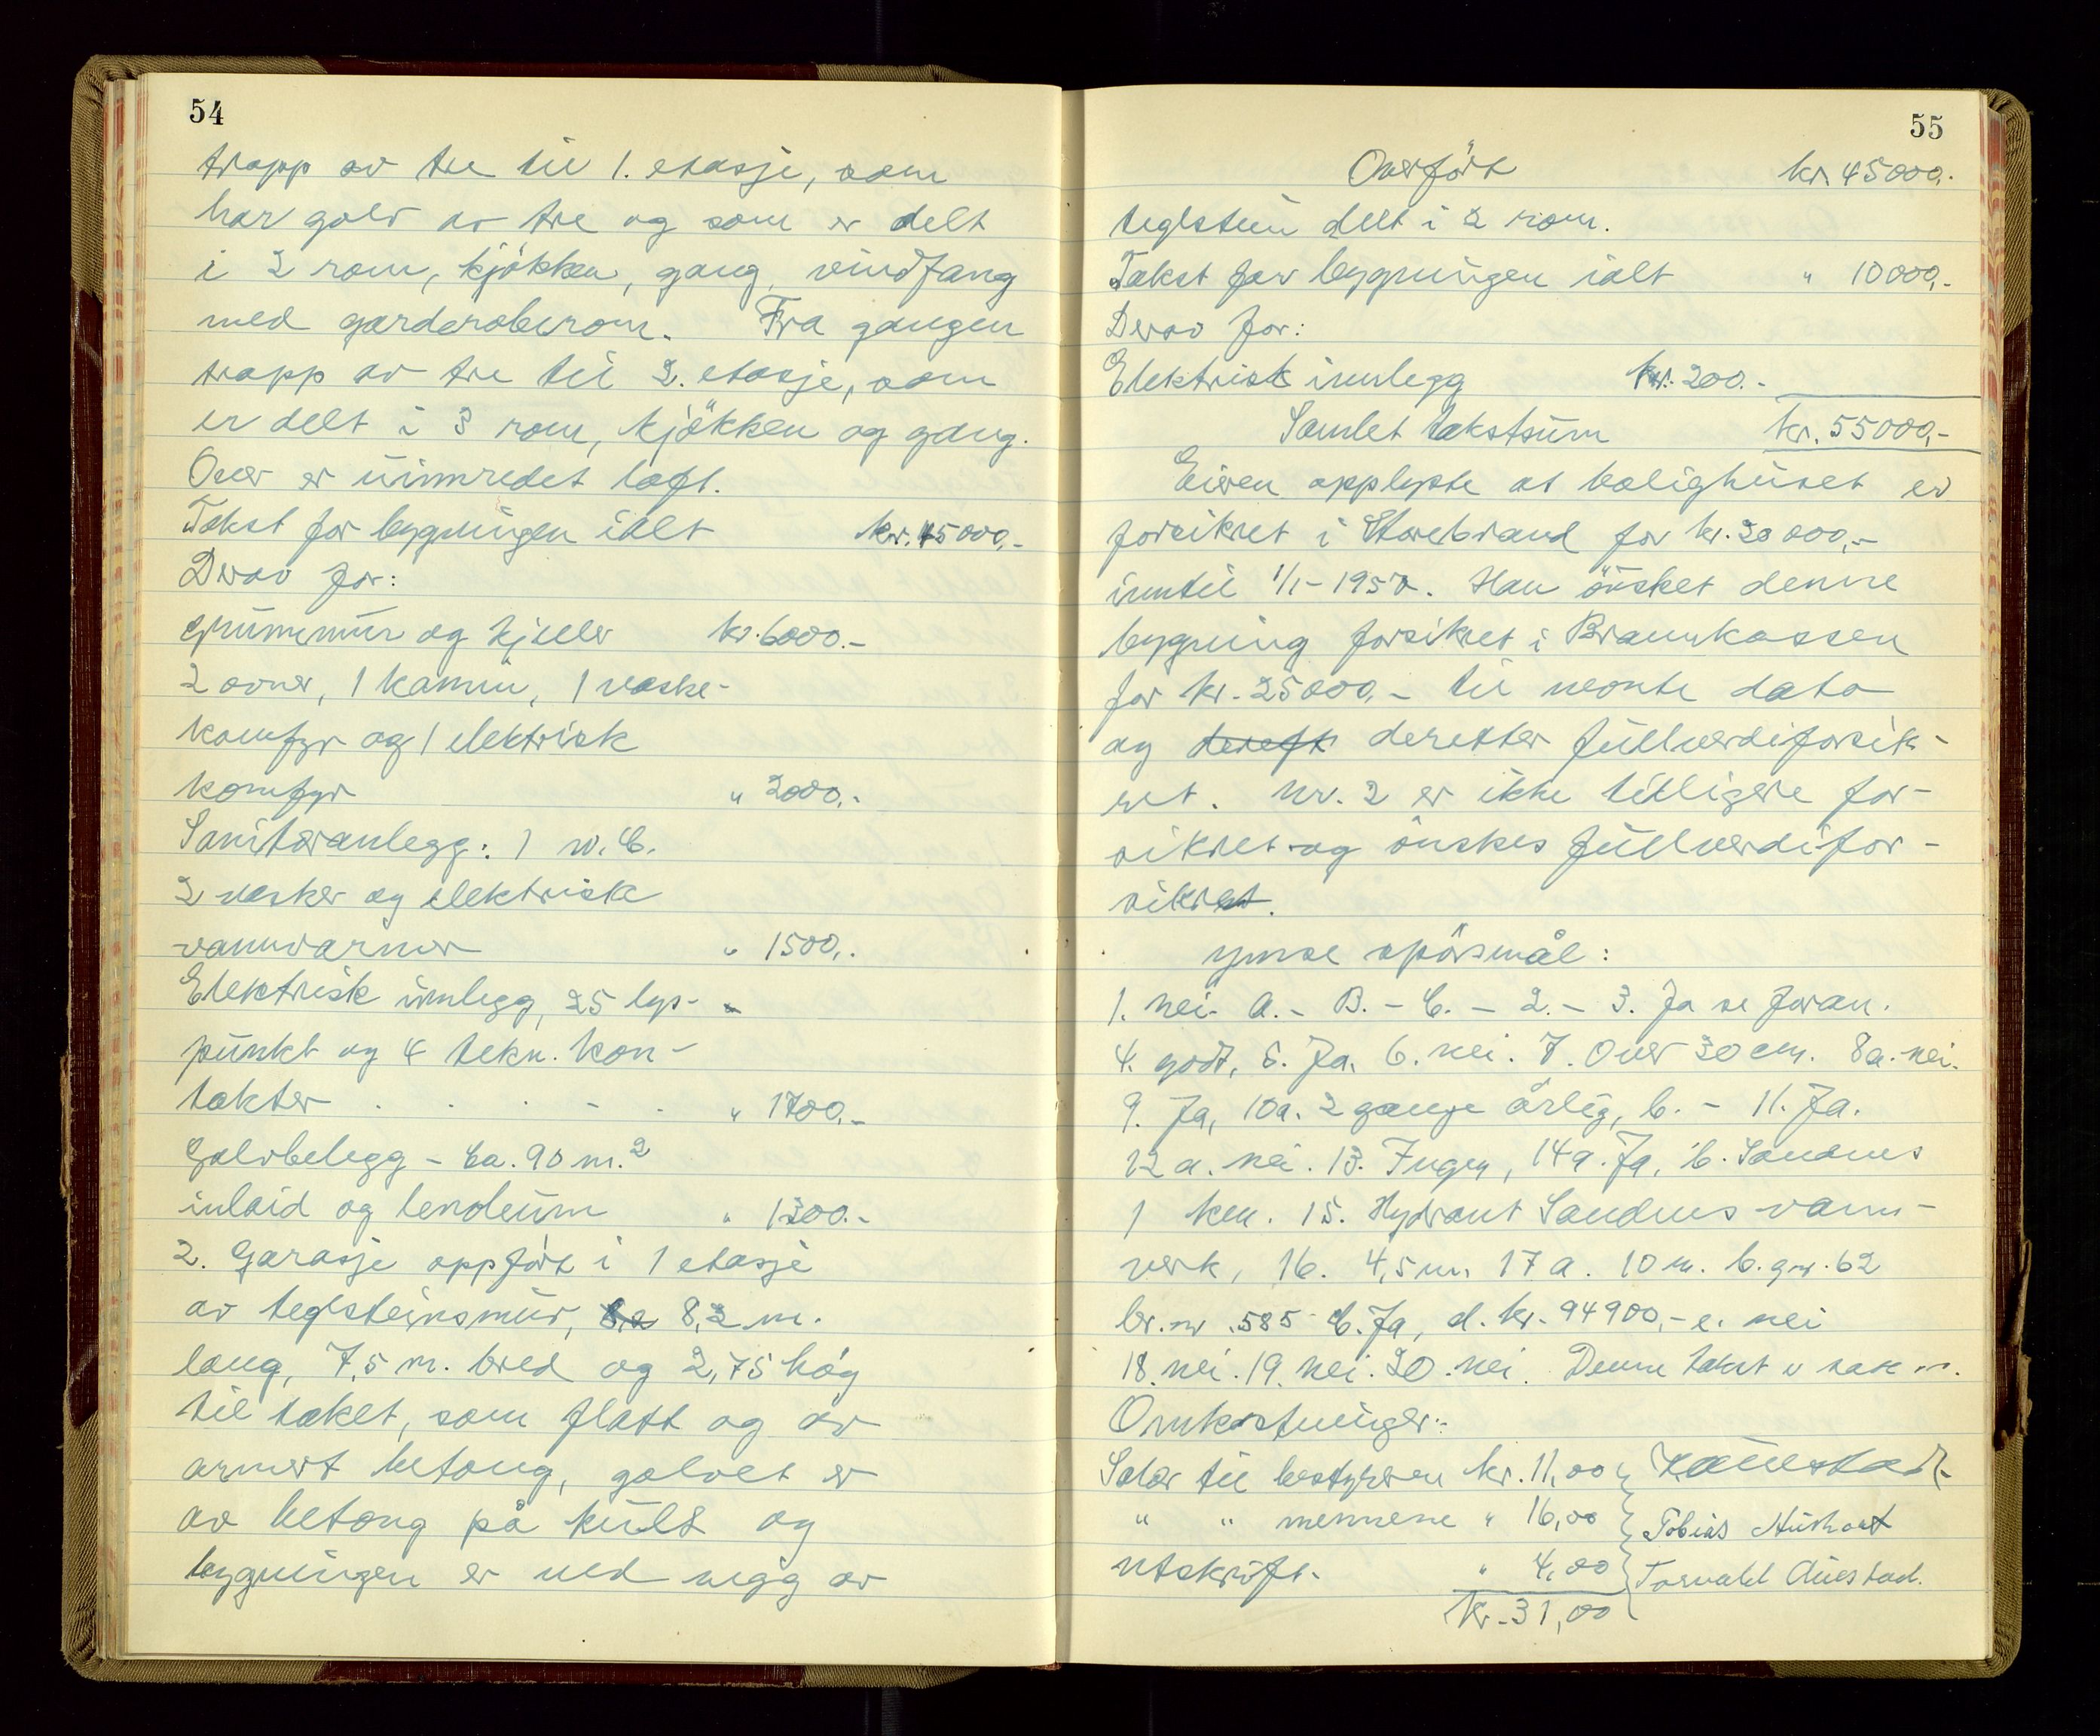 54
trapp av tre til 1. etasje, som
har golv av tre og som er delt
i 2 rom, kjökken, gang, vindfang
med garderoberom. Fra gangen
trapp av tre til 2. etasje, som
er delt i 3 rom, kjökken og gang.
Over er uinnredet loft.
Takst for bygningen ialt kr. 45000,-
Derav for:
Grunnmur og kjeller kr. 6000.-
2 ovner, 1 kamin, 1 vaske-
komfyr og 1 elektrisk
komfyr " 2000,-
Sanitæranlegg: 1 w.C.
2 vasker og elektrisk
vannvarmer " 1500,.
Elektrisk innlegg, 25 lys-
punkt og 4 tekn. kon-
takter . . . - . " 1700,-
Golvbelegg - Ca. 90 m.2
inlaid og lenoleum " 1300.-
2. Garasje oppfört i 1 etasje
av teglsteinsmur, 8,2 m.
lang, 7,5 m. bred og 2,75 hög
til taket, som flatt og av
armert betong, golvet er
av betong på kult og
bygningen er ved vegg av
55
Overfört kr. 45000.-
teglstein delt i 2 rom.
Takst for bygningen ialt " 10000,-
Derav for:
Elektrisk innlegg kr. 200.-
Samlet takstsum kr. 55000,-
Eieren opplyste at bolighuset er
forsikret i Storebrand for kr. 20000,-
inntil 1/1-1957. Han önsket denne
bygning forsikret i Brannkassen
for kr. 25000,- til nevnte dato
og dereft deretter fullverdiforsik-
ret. Nr. 2 er ikke tidligere for-
sikret og önskes fullverdifor-
sikret.
Ymse spörsmål:
1. nei A.- B.- C. - 2.- 3. Ja se foran.
4. godt, 5. Ja. 6. nei. 7. Over 30 cm. 8a. nei.
9. Ja, 10a. 2 gange årlig, b. - 11. Ja.
12 a. nei. 13. Ingen, 14a. Ja, b. Sandnes
1 km. 15. Hydrant Sandnes vann-
verk, 16. 4,5 m. 17 a. 10 m. b. gnr. 62
br. nr. 585 C. Ja, d. kr. 94900,- e. nei
18. nei. 19. nei. 20. nei. Denne takst er sak
Omkostninger:
Salær til bestyreren kr. 11,00
" " mennene " 16,00 Tobias
Utskrift. " 4,00 Torvald Auestad.
kr. 31,00